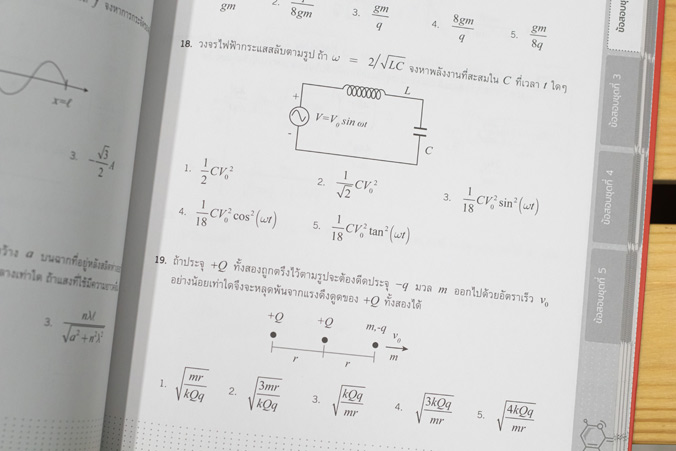 gm
2.
8gm
3. gm/q
4. 8gm/q
5. gm/8q
18. วงจรไฟฟ้ากระแสสลับตามรูป ถ้า ω = 2/√LC จงหาพลังงานที่สะสมใน C ที่เวลา t ใดๆ
L
+
V=V₀ sin ωt
-
C
1. 1/2 CV₀²
2. 1/√2 CV₀²
3. 1/18 CV₀² sin²(ωt)
4. 1/18 CV₀² cos²(ωt)
5. 1/18 CV₀² tan²(ωt)
19. ถ้าประจุ +Q ทั้งสองถูกตรึงไว้ตามรูปจะต้องดีดประจุ −q มวล m ออกไปด้วยอัตราเร็ว v₀
อย่างน้อยเท่าใดจึงจะหลุดพ้นจากแรงดึงดูดของ +Q ทั้งสองได้
+Q +Q m,-q v₀
r r m
1. √(mr/kQq)
2. √(3mr/kQq)
3. √(kQq/mr)
4. √(3kQq/mr)
5. √(4kQq/mr)
จงหาการกระจัด
x=ℓ
3. −√3/2 A
a บนฉากที่อยู่หลังสลิต
เท่าใด ถ้าแสงที่ใช้มีความยาว
3. nλl/√(a²+n²λ²)
ข้อสอบชุดที่ 3
ข้อสอบชุดที่ 4
ข้อสอบชุดที่ 5